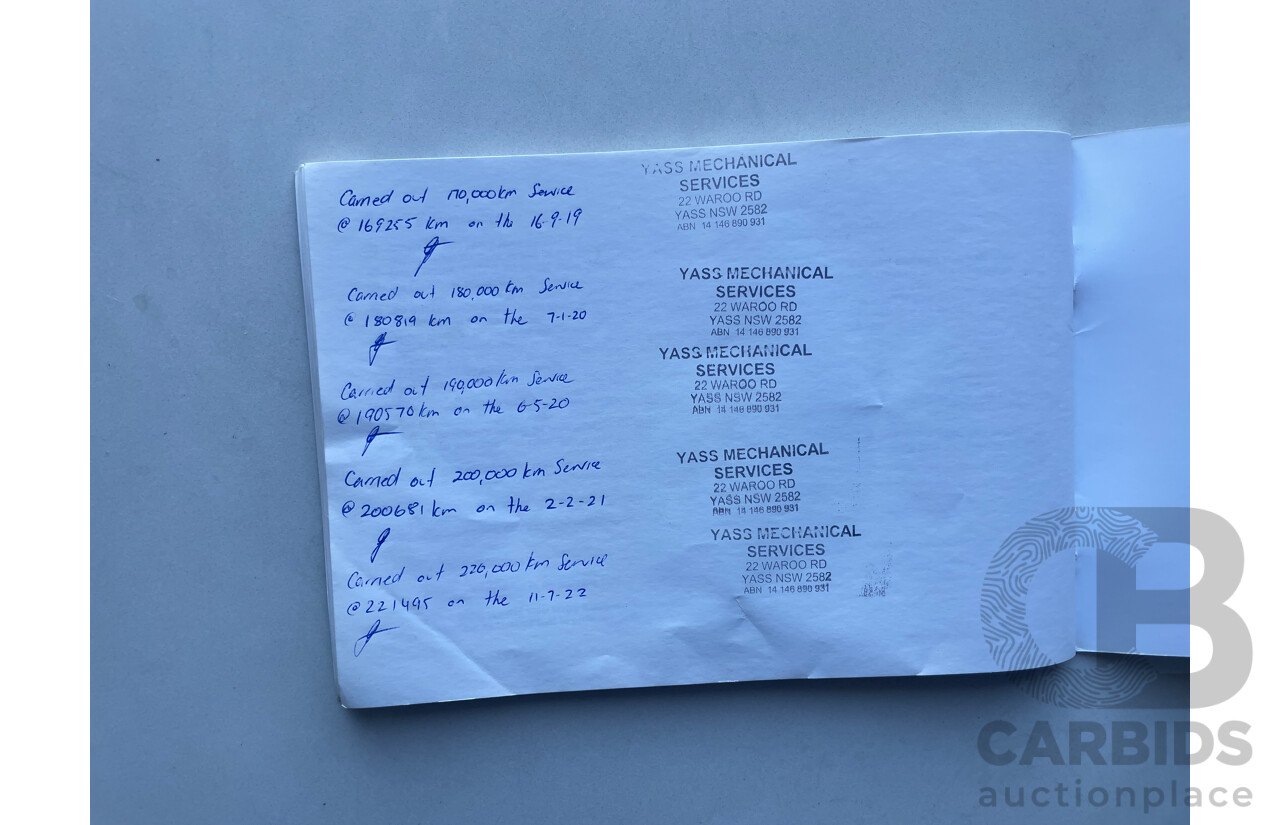 Carried out 170,000km Service
@ 169255 km on the 16-9-19
YASS MECHANICAL
SERVICES
22 WAROO RD
YASS NSW 2582
ABN 14 146 890 931
Carried out 180,000km Service
@ 180819 km on the 7-1-20
YASS MECHANICAL
SERVICES
22 WAROO RD
YASS NSW 2582
ABN 14 146 890 931
Carried out 190,000km Service
@ 190570km on the 6-5-20
YASS MECHANICAL
SERVICES
22 WAROO RD
YASS NSW 2582
ABN 14 146 890 931
Carried out 200,000km Service
@ 200681 km on the 2-2-21
YASS MECHANICAL
SERVICES
22 WAROO RD
YASS NSW 2582
ABN 14 146 890 931
Carried out 220,000km Service
@ 221495 on the 11-7-22
YASS MECHANICAL
SERVICES
22 WAROO RD
YASS NSW 2582
ABN 14 146 890 931
CB
CARBIDS
auctionplace